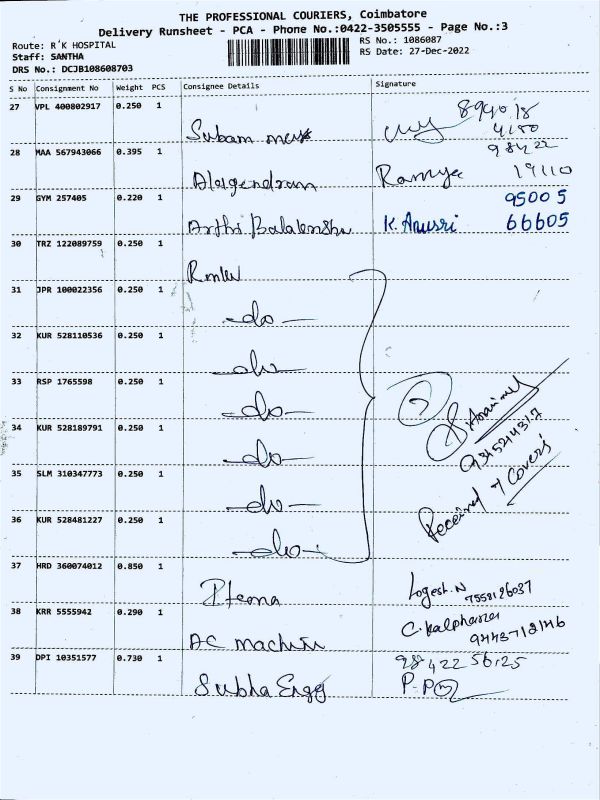 THE PROFESSIONAL COURIERS, Coimbatore
Delivery Runsheet - PCA - Phone No.:0422-3505555 - Page No.:3
Route: R K HOSPITAL
RS No.: 1086087
Staff: SANTHA
RS Date: 27-Dec-2022
DRS No.: DCJB108608703
S No Consignment No Weight PCS Consignee Details Signature
27 VPL 400802917 0.250 1
28 MAA 567943066 0.395 1
98422
Alagendram Ramya 19110
29 GYM 257405 0.220 1 95005
K. Anusri 66605
30 TRZ 122089759 0.250 1
31 JPR 100022356 0.250 1
-do-
32 KUR 528110536 0.250 1
-do-
33 RSP 1765598 0.250 1
-do-
34 KUR 528189791 0.250 1
-do-
35 SLM 310347773 0.250 1
-do-
36 KUR 528481227 0.250 1
-do-
7
Received 7 Covers
37 HRD 360074012 0.850 1
Logesh.N 7558126037
38 KRR 5555942 0.290 1
AC machine 9443712146
39 DPI 10351577 0.730 1 98422 56125
Subha Engg